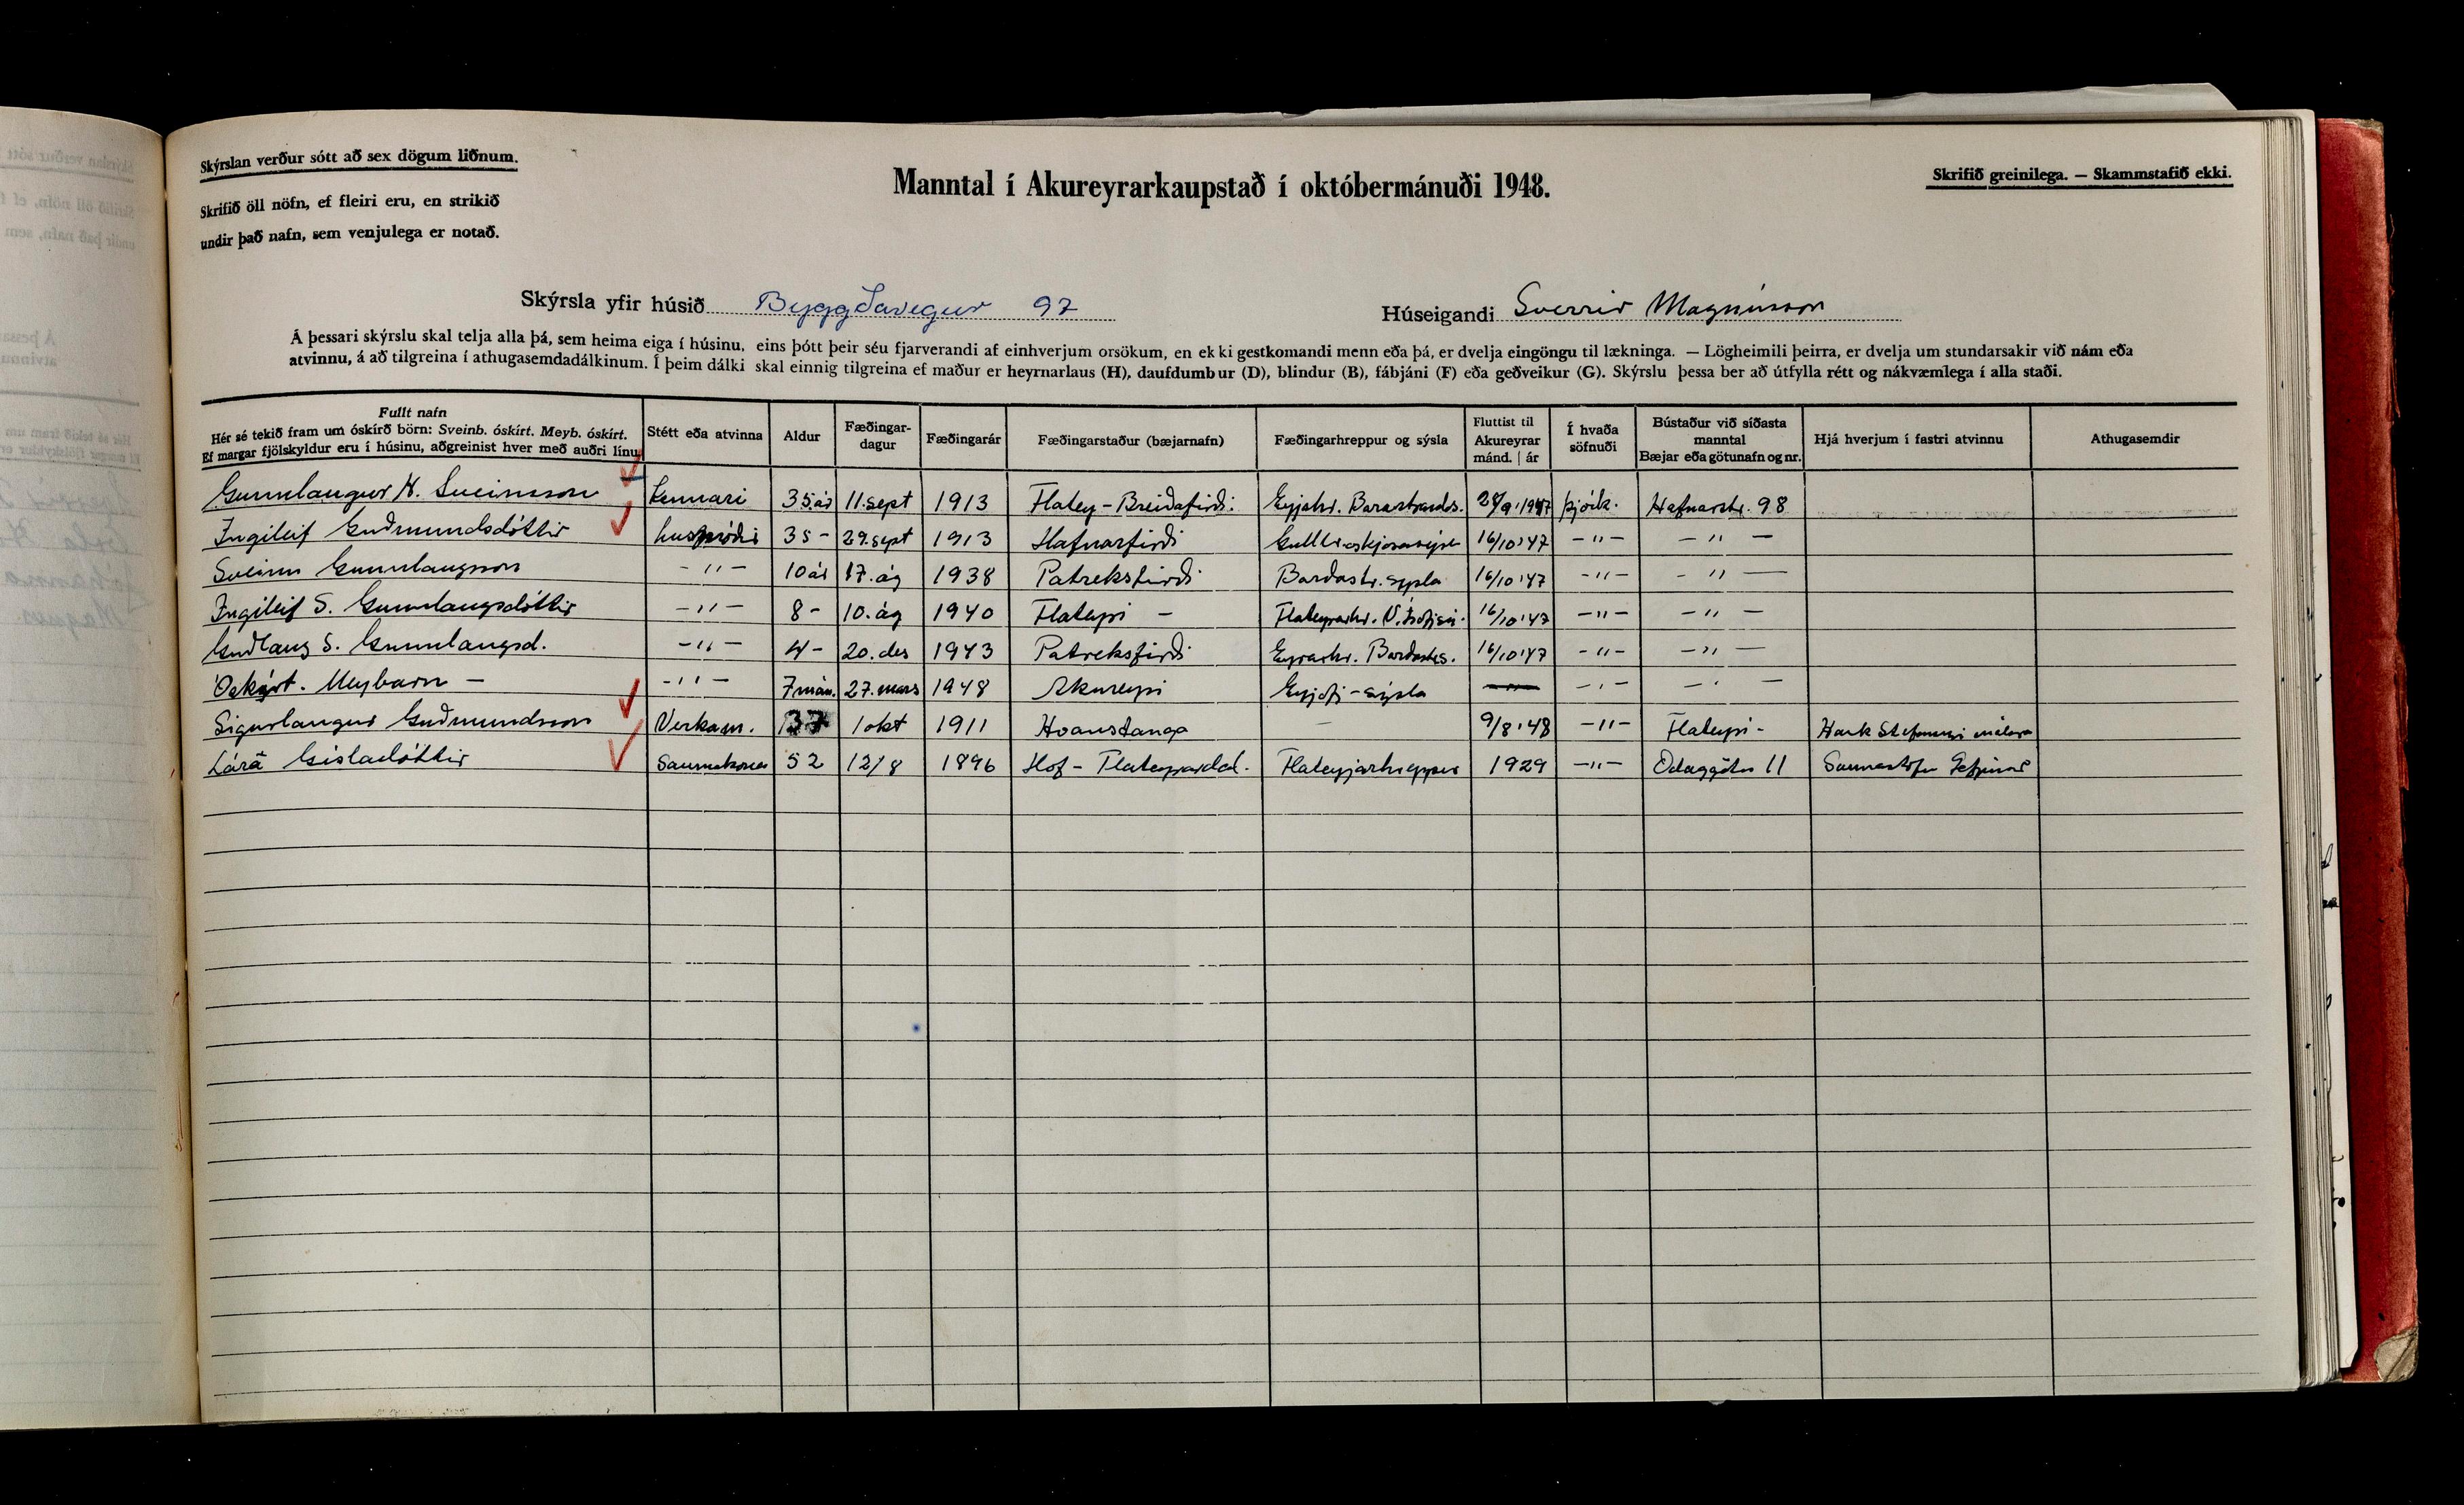 Skýrslan verður sótt að sex dögum liðnum.
Skrifið öll nöfn, ef fleiri eru, en strikið
undir það nafn, sem venjulega er notað.
Manntal í Akureyrarkaupstað í októbermánuði 1948.
Skrifið greinilega. — Skammstafið ekki.
Skýrsla yfir húsið Byggðavegur 97
Húseigandi Sverrir Magnússon
Á þessari skýrslu skal telja alla þá, sem heima eiga í húsinu, eins þótt þeir séu fjarverandi af einhverjum orsökum, en ekki gestkomandi menn eða þá, er dvelja eingöngu til lækninga. — Lögheimili þeirra, er dvelja um stundarsakir við nám eða
atvinnu, á að tilgreina í athugasemdadálkinum. Í þeim dálki skal einnig tilgreina ef maður er heyrnarlaus (H), daufdumbur (D), blindur (B), fábjáni (F) eða geðveikur (G). Skýrslu þessa ber að útfylla rétt og nákvæmlega í alla staði.
Fullt nafn
Hér sé tekið fram um óskírð börn: Sveinb. óskírt. Meyb. óskírt.
Ef margar fjölskyldur eru í húsinu, aðgreinist hver með auðri línu.
Stétt eða atvinna
Aldur
Fæðingar-
dagur
Fæðingarár
Fæðingarstaður (bæjarnafn)
Fæðingarhreppur og sýsla
Fluttist til
Akureyrar
mánd. | ár
Í hvaða
söfnuði
Bústaður við síðasta
manntal
Bæjar eða götunafn og nr.
Hjá hverjum í fastri atvinnu
Athugasemdir
Gunnlaugur H. Sveinsson kennari 35 ár 11. sept 1913 Flatey - Breiðafirði. Eyjahr. Barastrands. 9. 1947 þjóðk. Hafnarstr. 98
Ingileif Guðmundsdóttir húsmóðir 35 - 29. sept 1913 Hafnarfirði 16/10 '47 - " - - " -
Sveinn Gunnlaugsson - " - 10 ár 17. ág 1938 Patreksfirði Barðastr. sýsla 16/10 '47 - " - - " -
Ingileif S. Gunnlaugsdóttir - " - 8 - 10. ág 1940 Flateyri - Flateyrarhr. V. 16/10 '47 - " - - " -
Guðlaug S. Gunnlaugsd. - " - 4 - 20. des 1943 Patreksfirði Eyrarhr. Barðastrs. 16/10 '47 - " - - " -
Óskírt. Meybarn - - " - 7 mán. 27. mars 1948 Akureyri Eyjafj - sýsla — - " - - " -
Sigurlaugur Guðmundsson Verkam. 37 1 okt 1911 Hvamstanga - 9/8 '48 - " - Flateyri - Hauk Stefánssyni málara
Lára Gísladóttir Saumakona 52 12/8 1896 Hof - Flateyrardal. Flateyjarhreppur 1929 - " - Oddagötu 11 Saumastofu Gefjunar